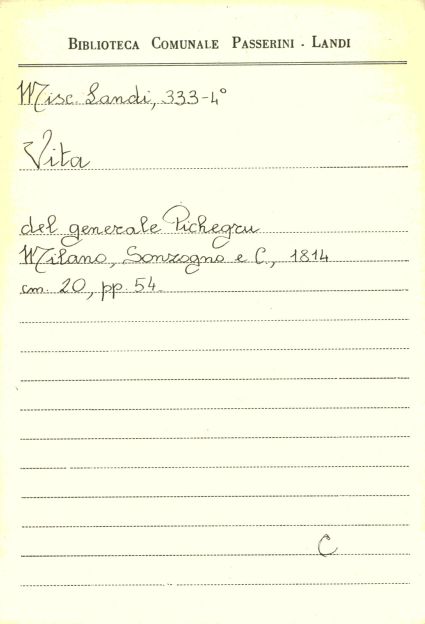 BIBLIOTECA COMUNALE PASSERINI - LANDI
Misc. Landi, 333-4°
Vita
del generale Pichegru
Milano, Sonzogno e C., 1814
cm. 20, pp. 54.
C